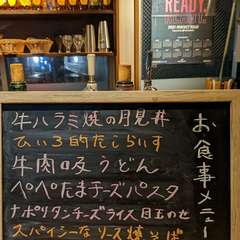 READY.
お食事メニュー
牛ハラミ焼の月見丼
牛肉吸うどん
ペペたま チーズパスタ
ナポリタンチーズライス 目玉のせ
スパイシーなソース焼そば